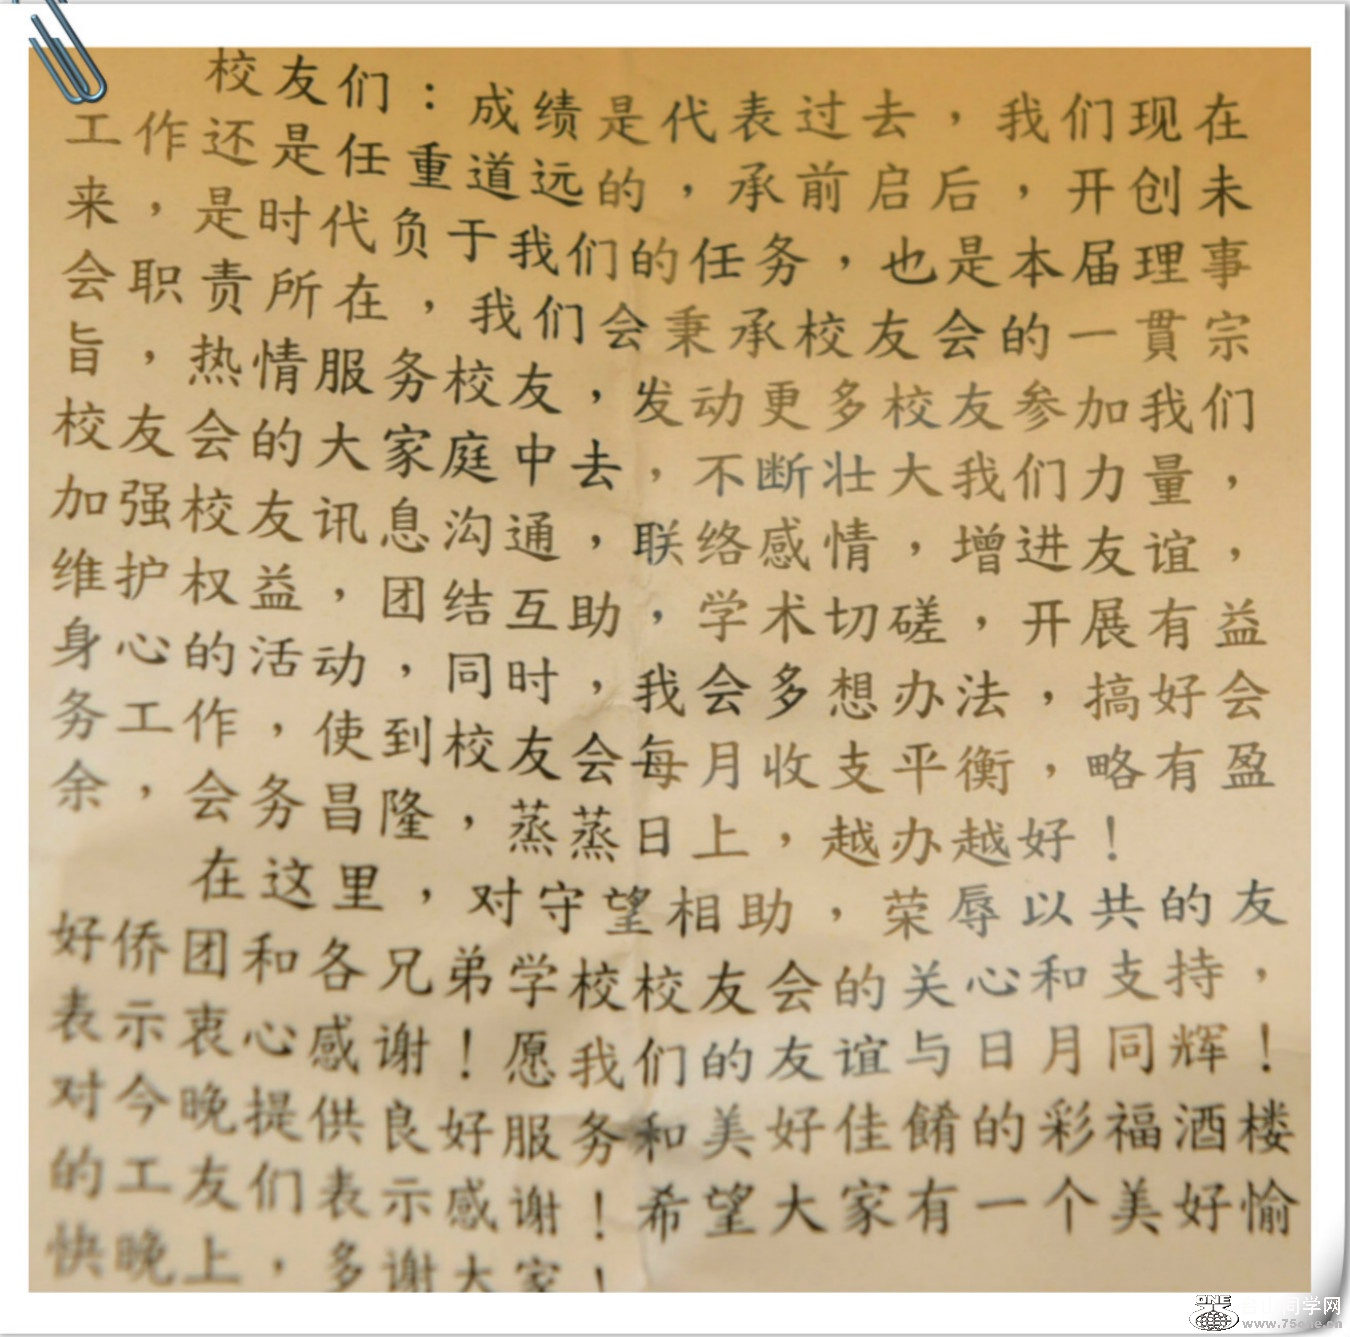 校友们：成绩是代表过去，我们现在
工作还是任重道远的，承前启后，开创未
来，是时代负于我们的任务，也是本届理事
会职责所在，我们会秉承校友会的一貫宗
旨，热情服务校友，发动更多校友参加我们
校友会的大家庭中去，不断壮大我们力量，
加强校友讯息沟通，联络感情，增进友谊，
维护权益，团结互助，学术切磋，开展有益
身心的活动，同时，我会多想办法，搞好会
务工作，使到校友会每月收支平衡，略有盈
余，会务昌隆，蒸蒸日上，越办越好！
在这里，对守望相助，荣辱以共的友
好侨团和各兄弟学校校友会的关心和支持，
表示衷心感谢！愿我们的友谊与日月同辉！
对今晚提供良好服务和美好佳餚的彩福酒楼
的工友们表示感谢！希望大家有一个美好愉
快晚上，多谢大家！
ONE 同学网
www.75one.cn